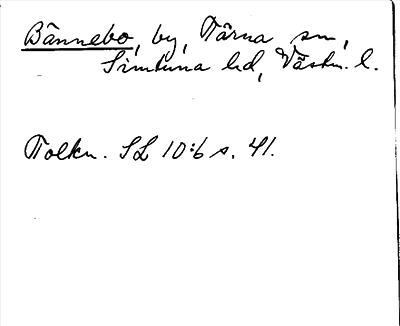 Bännebo, by, Tärna sn,
Simtuna hd, Västm. l.
Tolkn. SL 10:6 s. 41.